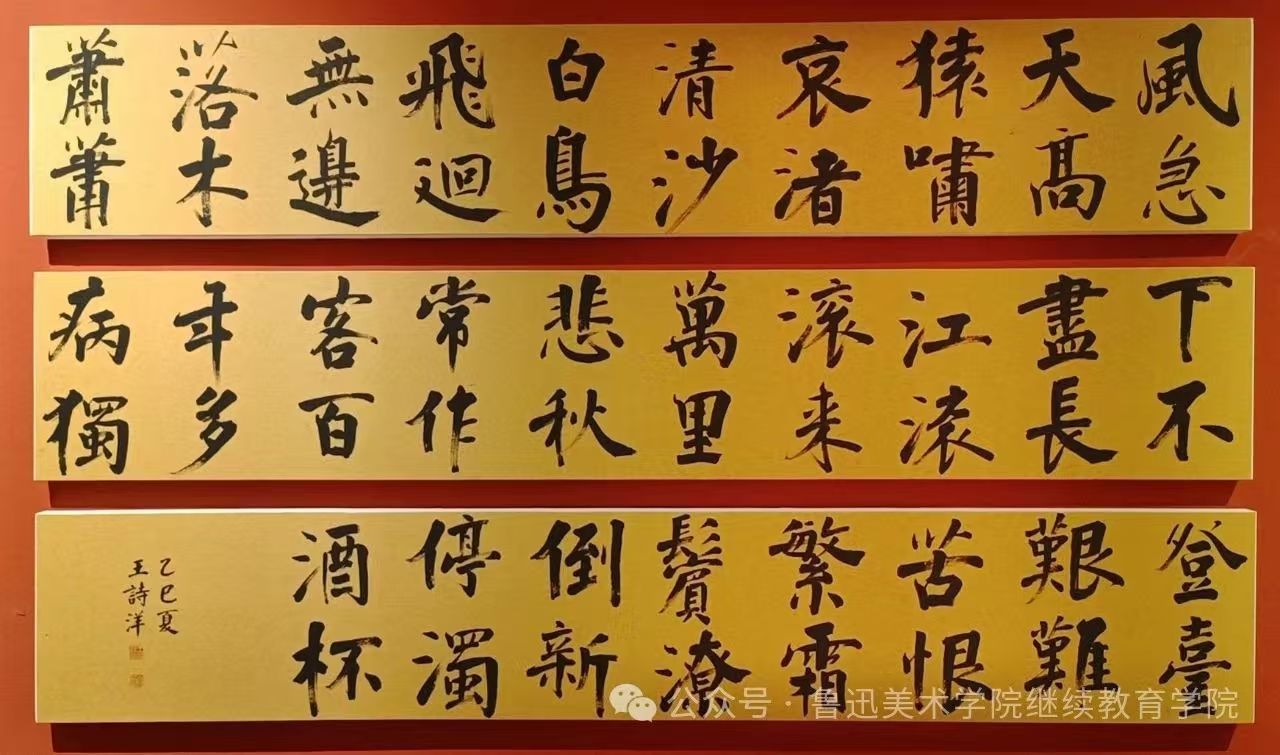 風急
天高
猿嘯
哀渚
清沙
白鳥
飛迴
無邊
落木
蕭蕭
下不
盡長
江滚
滚来
萬里
悲秋
常作
客百
年多
病獨
登臺
艱難
苦恨
繁霜
鬢潦
倒新
停濁
酒杯
乙巳夏
王詩洋
公众号 · 鲁迅美术学院继续教育学院